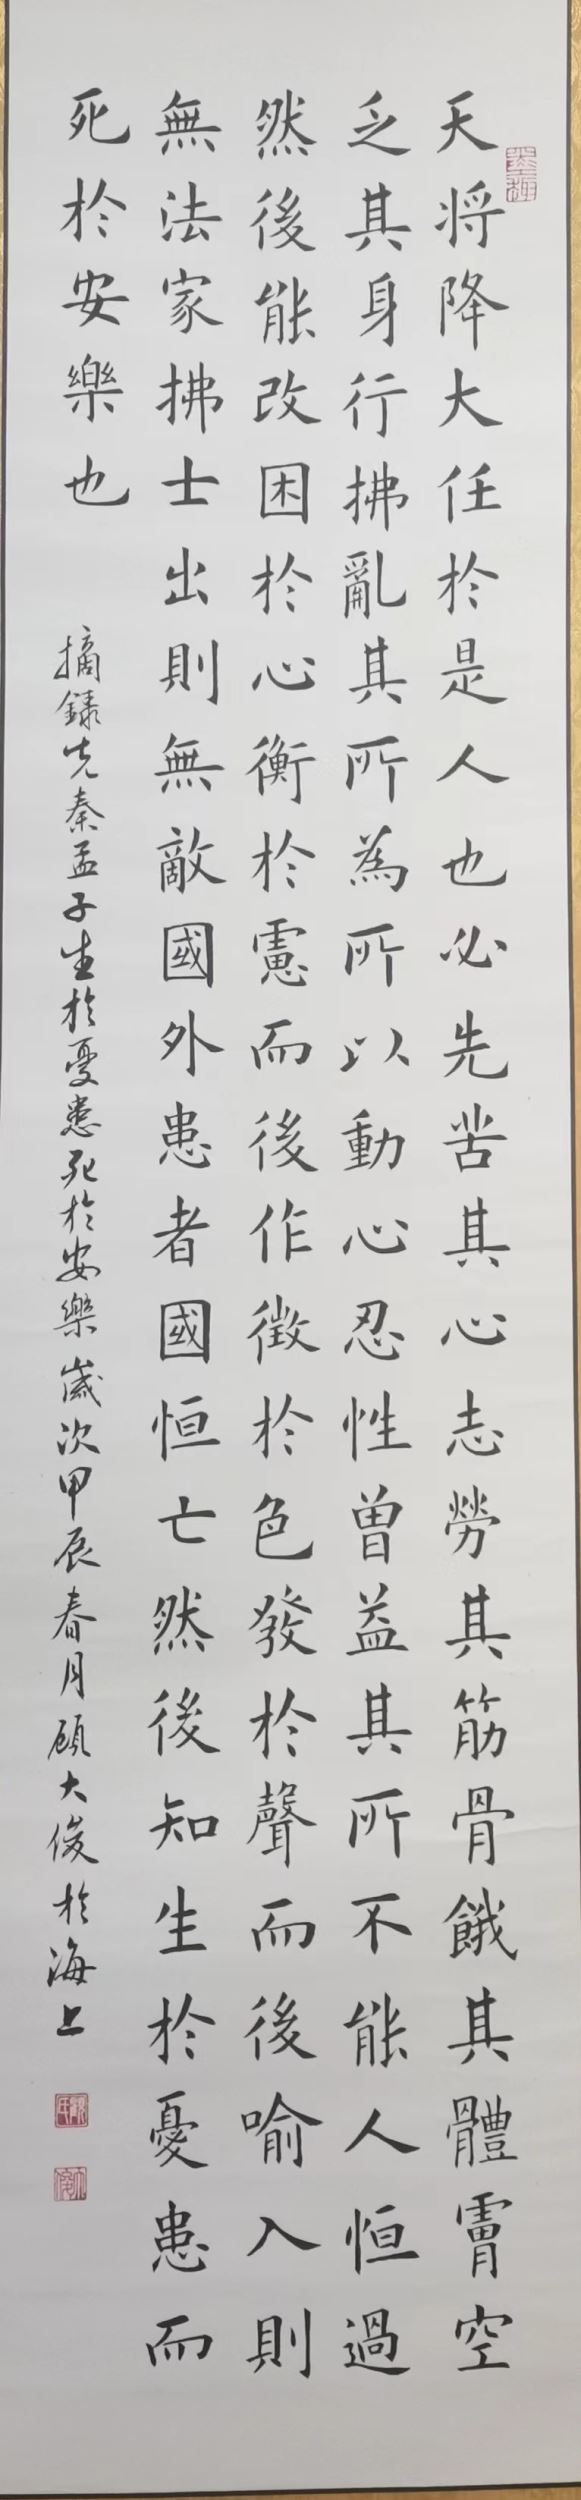 天将降大任於是人也必先苦其心志勞其筋骨餓其體膚空
乏其身行拂亂其所為所以動心忍性曽益其所不能人恒過
然後能改困於心衡於慮而後作徵於色發於聲而後喻入則
無法家拂士出則無敵國外患者國恒亡然後知生於憂患而
死於安樂也
摘録先秦孟子生於憂患死於安樂歲次甲辰春月顧大俊於海上